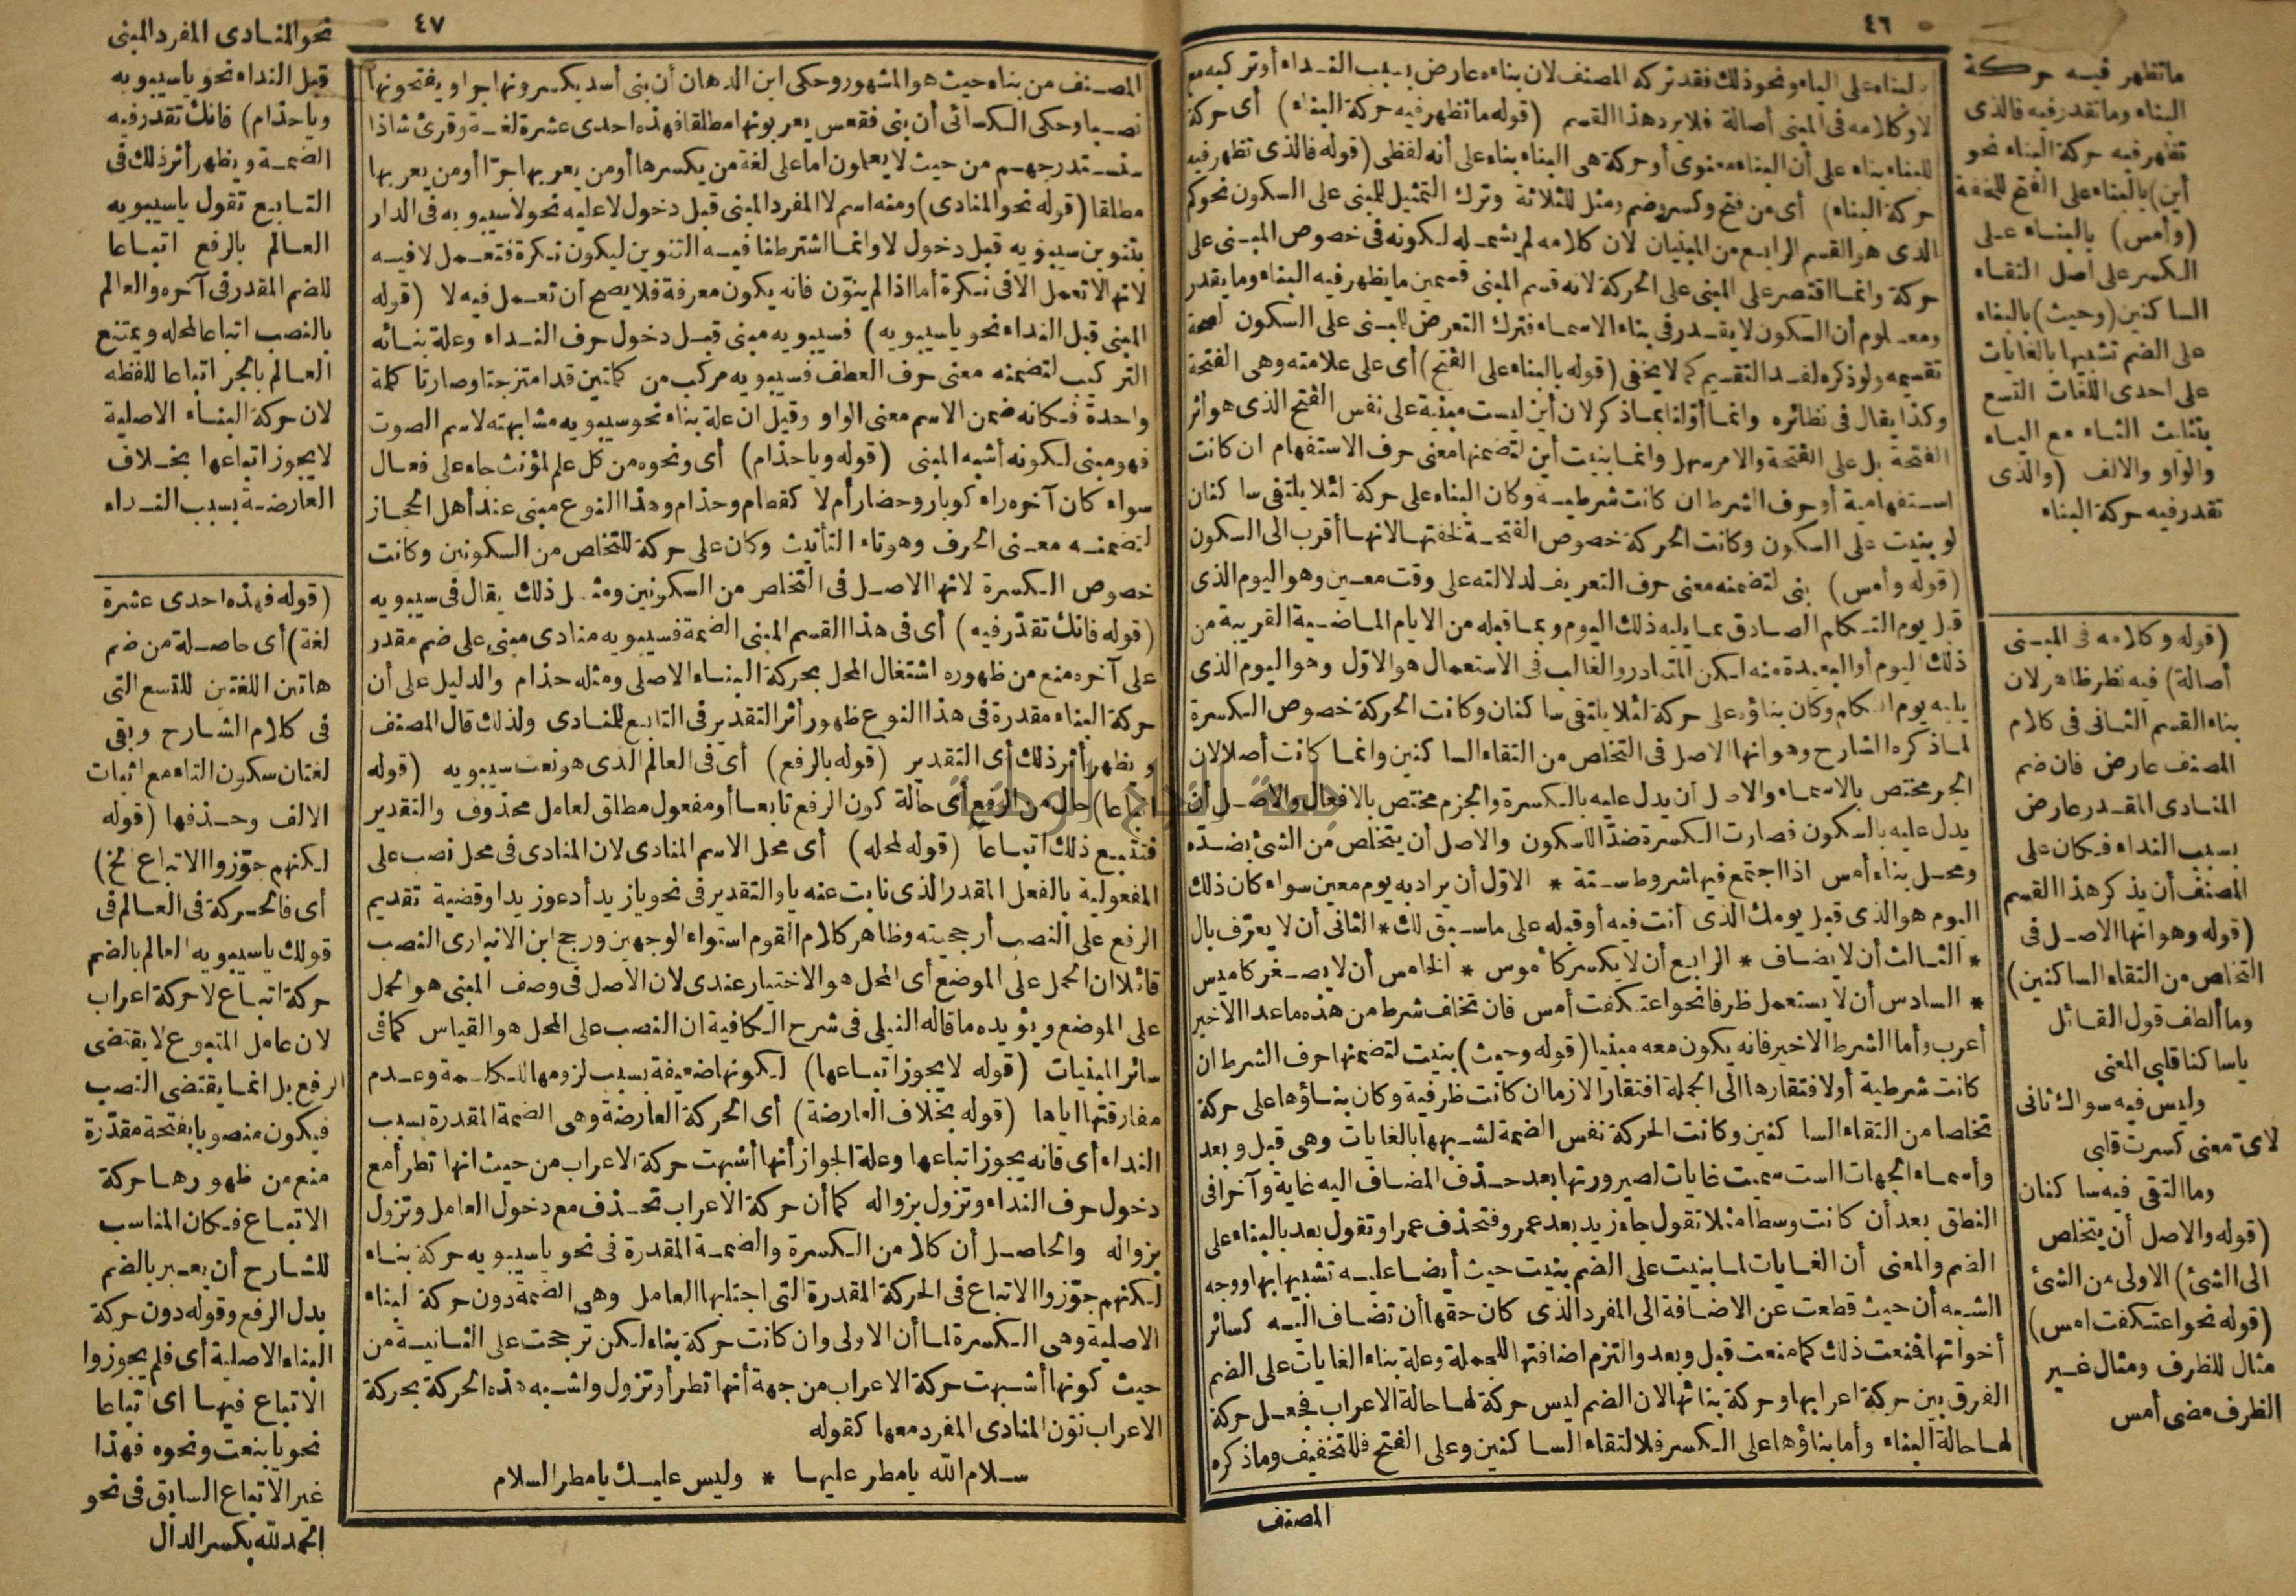 ٤٦
ما تظهر فيه حركة
البناء وما تقدر فيه فالذى
تظهر فيه حركة البناء نحو
أين) بالبناء على الفتح للخفة
(وأمس) بالبناء على
الكسر على أصل التقاء
الساكنين (وحيث) بالبناء
على الضم تشبيها بالغايات
على احدى اللغات التسع
بتثليث الثاء مع الياء
والواو والالف (والذى
تقدر فيه حركة البناء
(قوله وكلامه فى المبنى
أصالة) فيه نظر ظاهر لان
بناء القسم الثانى فى كلام
المصنف عارض فان ضم
المنادى المقدر عارض
بسبب النداء فكان على
المصنف أن يذكر هذا القسم
(قوله وهو انها الاصل فى
التخلص من التقاء الساكنين)
وما ألطف قول القائل
ياسا كنا قلبى المعنى
وليس فيه سواك ثانى
لاى معنى كسرت قلبى
وما التقى فيه ساكنان
(قوله والاصل أن يتخلص
الى الشئ) الاولى من الشئ
(قوله نحو اعتكفت امس)
مثال للظرف ومثال غير
الظرف مضى أمس
البناء على الياء ونحو ذلك فقد تركه المصنف لان بناءه عارض بسبب النداء أو تركيبه مع
لا وكلامه فى المبنى أصالة فلا يرد هذا القسم (قوله ما تظهر فيه حركة البناء) أى حركة
للبناء بناء على أن البناء معنوى أو حركة هى البناء بناء على أنه لفظى (قوله فالذى تظهر فيه
حركة البناء) أى من فتح وكسر وضم ومثل للثلاثة وترك التمثيل للمبنى على السكون نحوكم
الذى هو القسم الرابع من المبنيان لان كلامه لم يشمله لكونه فى خصوص المبنى على
حركة وانما اقتصر على المبنى على الحركة لانه قسم المبنى قسمين ما يظهر فيه البناء وما يقدر
ومعلوم أن السكون لا يقدر فى بناء الاسماء فترك التعرض للمبنى على السكون لصحة
تقسيمه ولو ذكره لفسد التقسيم كما لا يخفى (قوله بالبناء على الفتح) أى على علامته وهى الفتحة
وكذا يقال فى نظائره وانما أولنا بما ذكر لان أين ليست مبنية على نفس الفتح الذى هو اثر
الفتحة بل على الفتحة والامر سهل وانما بنيت أين لتضمنها معنى حرف الاستفهام ان كانت
استفهامية أو حرف الشرط ان كانت شرطية وكان البناء على حركة لئلا يلتقى ساكنان
لو بنيت على السكون وكانت الحركة خصوص الفتحة لخفتها لانها أقرب الى السكون
(قوله وأمس) بنى لتضمنه معنى حرف التعريف لدلالته على وقت معين وهو اليوم الذى
قبل يوم التكلم الصادق بما يليه ذلك اليوم وبما قبله من الايام الماضية القريبة من
ذلك اليوم أو البعيدة منه لكن المتبادر والغالب فى الاستعمال هو الاول وهو اليوم الذى
يليه يوم التكلم وكان بناؤه على حركة لئلا يلتقى ساكنان وكانت الحركة خصوص الكسرة
لما ذكره الشارح وهو انها الاصل فى التخلص من التقاء الساكنين وانما كانت أصلا لان
الجر مختص بالاسماء والاصل أن يدل عليه بالكسرة والجزم مختص بالافعال والاصل أن
يدل عليه بالسكون فصارت الكسرة ضد السكون والاصل أن يتخلص من الشئ بضده
ومحل بناء أمس اذا اجتمع فيها شروط ستة * الاول أن يراد به يوم معين سواء كان ذلك
اليوم هو الذى قبل يومك الذى أنت فيه أو قبله على ما سبق لك * الثانى أن لا يعرف بال
* الثالث أن لا يضاف * الرابع أن لا يكسر كأموس * الخامس أن لا يصغر كاميس
* السادس أن لا يستعمل ظرفا نحو اعتكفت أمس فان تخلف شرط من هذه ما عدا الاخير
أعرب وأما الشرط الاخير فانه يكون معه مبنيا (قوله وحيث) بنيت لتضمنها حرف الشرط ان
كانت شرطية أو لافتقارها الى الجملة افتقارا لازما ان كانت ظرفية وكان بناؤها على حركة
تخلصا من التقاء الساكنين وكانت الحركة نفس الضمة لشبهها بالغايات وهى قبل وبعد
وأسماء الجهات الست سميت غايات لصيرورتها بعد حذف المضاف اليه غاية وآخرا فى
النطق بعد أن كانت وسطا مثلا تقول جاء زيد بعد عمرو فتحذف عمرا وتقول بعد بالبناء على
الضم والمعنى أن الغايات لما بنيت على الضم بنيت حيث أيضا عليه تشبيها بها ووجه
الشبه أن حيث قطعت عن الاضافة الى المفرد الذى كان حقها أن تضاف اليه كسائر
أخواتها فمنعت ذلك كما منعت قبل وبعد والتزم اضافتها للجملة وعلة بناء الغايات على الضم
الفرق بين حركة اعرابها وحركة بنائها لان الضم ليس حركة لها حالة الاعراب فجعل حركة
لها حالة البناء وأما بناؤها على الكسر فلالتقاء الساكنين وعلى الفتح فللتخفيف وما ذكره
المصنف
٤٧
المصنف من بناء حيث هو المشهور وحكى ابن الدهان أن بنى أسد يكسرونها جرا ويفتحونها
نصبا وحكى الكسائى أن بنى فقعس يعربونها مطلقا فهذه احدى عشرة لغة وقرئ شاذا
سنستدرجهم من حيث لا يعلمون اما على لغة من يكسرها أو من يعربها جرا أو من يعربها
مطلقا (قوله نحو المنادى) ومنه اسم لا المفرد المبنى قبل دخول لا عليه نحو لا سيبويه فى الدار
بتنوين سيبويه قبل دخول لا وانما اشترطنا فيه التنوين ليكون نكرة فتعمل لا فيه
لانها لا تعمل الا فى نكرة أما اذا لم ينون فانه يكون معرفة فلا يصح أن تعمل فيه لا (قوله
المبنى قبل النداء نحو يا سيبويه) فسيبويه مبنى قبل دخول حرف النداء وعلة بنائه
التركيب لتضمنه معنى حرف العطف فسيبويه مركب من كلمتين قد امتزجتا وصارتا كلمة
واحدة فكانه ضمن الاسم معنى الواو وقيل ان علة بناء نحو سيبويه مشابهته لاسم الصوت
فهو مبنى لكونه أشبه المبنى (قوله ويا حذام) أى ونحوه من كل علم لمؤنث جاء على فعال
سواء كان آخره راء كوبار وحضار أم لا كقطام وحذام وهذا النوع مبنى عند أهل الحجاز
لتضمنه معنى الحرف وهو تاء التأنيث وكان على حركة للتخلص من السكونين وكانت
خصوص الكسرة لانها الاصل فى التخلص من السكونين ومثل ذلك يقال فى سيبويه
(قوله فانك تقدر فيه) أى فى هذا القسم المبنى الضمة فسيبويه منادى مبنى على ضم مقدر
على آخره منع من ظهوره اشتغال المحل بحركة البناء الاصلى ومثله حذام والدليل على أن
حركة البناء مقدرة فى هذا النوع ظهور أثر التقدير فى التابع للمنادى ولذلك قال المصنف
ويظهر أثر ذلك أى التقدير (قوله بالرفع) أى فى العالم الذى هو نعت سيبويه (قوله
اتباعا) حال من الرفع أى حالة كون الرفع تابعا أو مفعول مطلق لعامل محذوف والتقدير
فتتبع ذلك اتباعا (قوله لمحله) أى محل الاسم المنادى لان المنادى فى محل نصب على
المفعولية بالفعل المقدر الذى نابت عنه يا والتقدير فى نحو يا زيد أدعو زيدا وقضية تقديم
الرفع على النصب أرجحيته وظاهر كلام القوم استواء الوجهين ورجح ابن الانبارى النصب
قائلا ان الحمل على الموضع أى المحل هو الاختيار عندى لان الاصل فى وصف المبنى هو الحمل
على الموضع ويؤيده ما قاله النيلى فى شرح الكافية ان النصب على المحل هو القياس كما فى
سائر المبنيات (قوله لا يجوز اتباعها) لكونها ضعيفة بسبب لزومها للكلمة وعدم
مفارقتها اياها (قوله بخلاف العارضة) أى الحركة العارضة وهى الضمة المقدرة بسبب
النداء أى فانه يجوز اتباعها وعلة الجواز أنها أشبهت حركة الاعراب من حيث انها تطرأ مع
دخول حرف النداء وتزول بزواله كما أن حركة الاعراب تحدث مع دخول العامل وتزول
بزواله والحاصل أن كلا من الكسرة والضمة المقدرة فى نحو يا سيبويه حركة بناء
لكنهم جوزوا الاتباع فى الحركة المقدرة التى اجتلبها العامل وهى الضمة دون حركة البناء
الاصلية وهى الكسرة لما أن الاولى وان كانت حركة بناء لكن ترجحت على الثانية من
حيث كونها أشبهت حركة الاعراب من جهة أنها تطرأ وتزول واشبه هذه الحركة بحركة
الاعراب نون المنادى المفرد معها كقوله
سلام الله يا مطر عليها * وليس عليك يا مطر السلام
نحو المنادى المفرد المبنى
قبل النداء نحو يا سيبويه
ويا حذام) فانك تقدر فيه
الضمة ويظهر أثر ذلك فى
التابع تقول يا سيبويه
العالم بالرفع اتباعا
للضم المقدر فى آخره والعالم
بالنصب اتباعا لمحله ويمتنع
العالم بالجر اتباعا للفظه
لان حركة البناء الاصلية
لا يجوز اتباعها بخلاف
العارضة بسبب النداء
(قوله فهذه احدى عشرة
لغة) أى حاصلة من ضم
هاتين اللغتين للتسع التى
فى كلام الشارح وبقى
لغتان سكون الثاء مع اثبات
الالف وحذفها (قوله
لكنهم جوزوا الاتباع الخ)
أى فالحركة فى العالم فى
قولك يا سيبويه العالم بالضم
حركة اتباع لا حركة اعراب
لان عامل المتبوع لا يقتضى
الرفع بل انما يقتضى النصب
فيكون منصوبا بفتحة مقدرة
منع من ظهورها حركة
الاتباع فكان المناسب
للشارح أن يعبر بالضم
بدل الرفع وقوله دون حركة
البناء الاصلية أى فلم يجوزوا
الاتباع فيها اى اتباعا
نحويا بنعت ونحوه فهذا
غير الاتباع السابق فى نحو
الحمد لله بكسر الدال